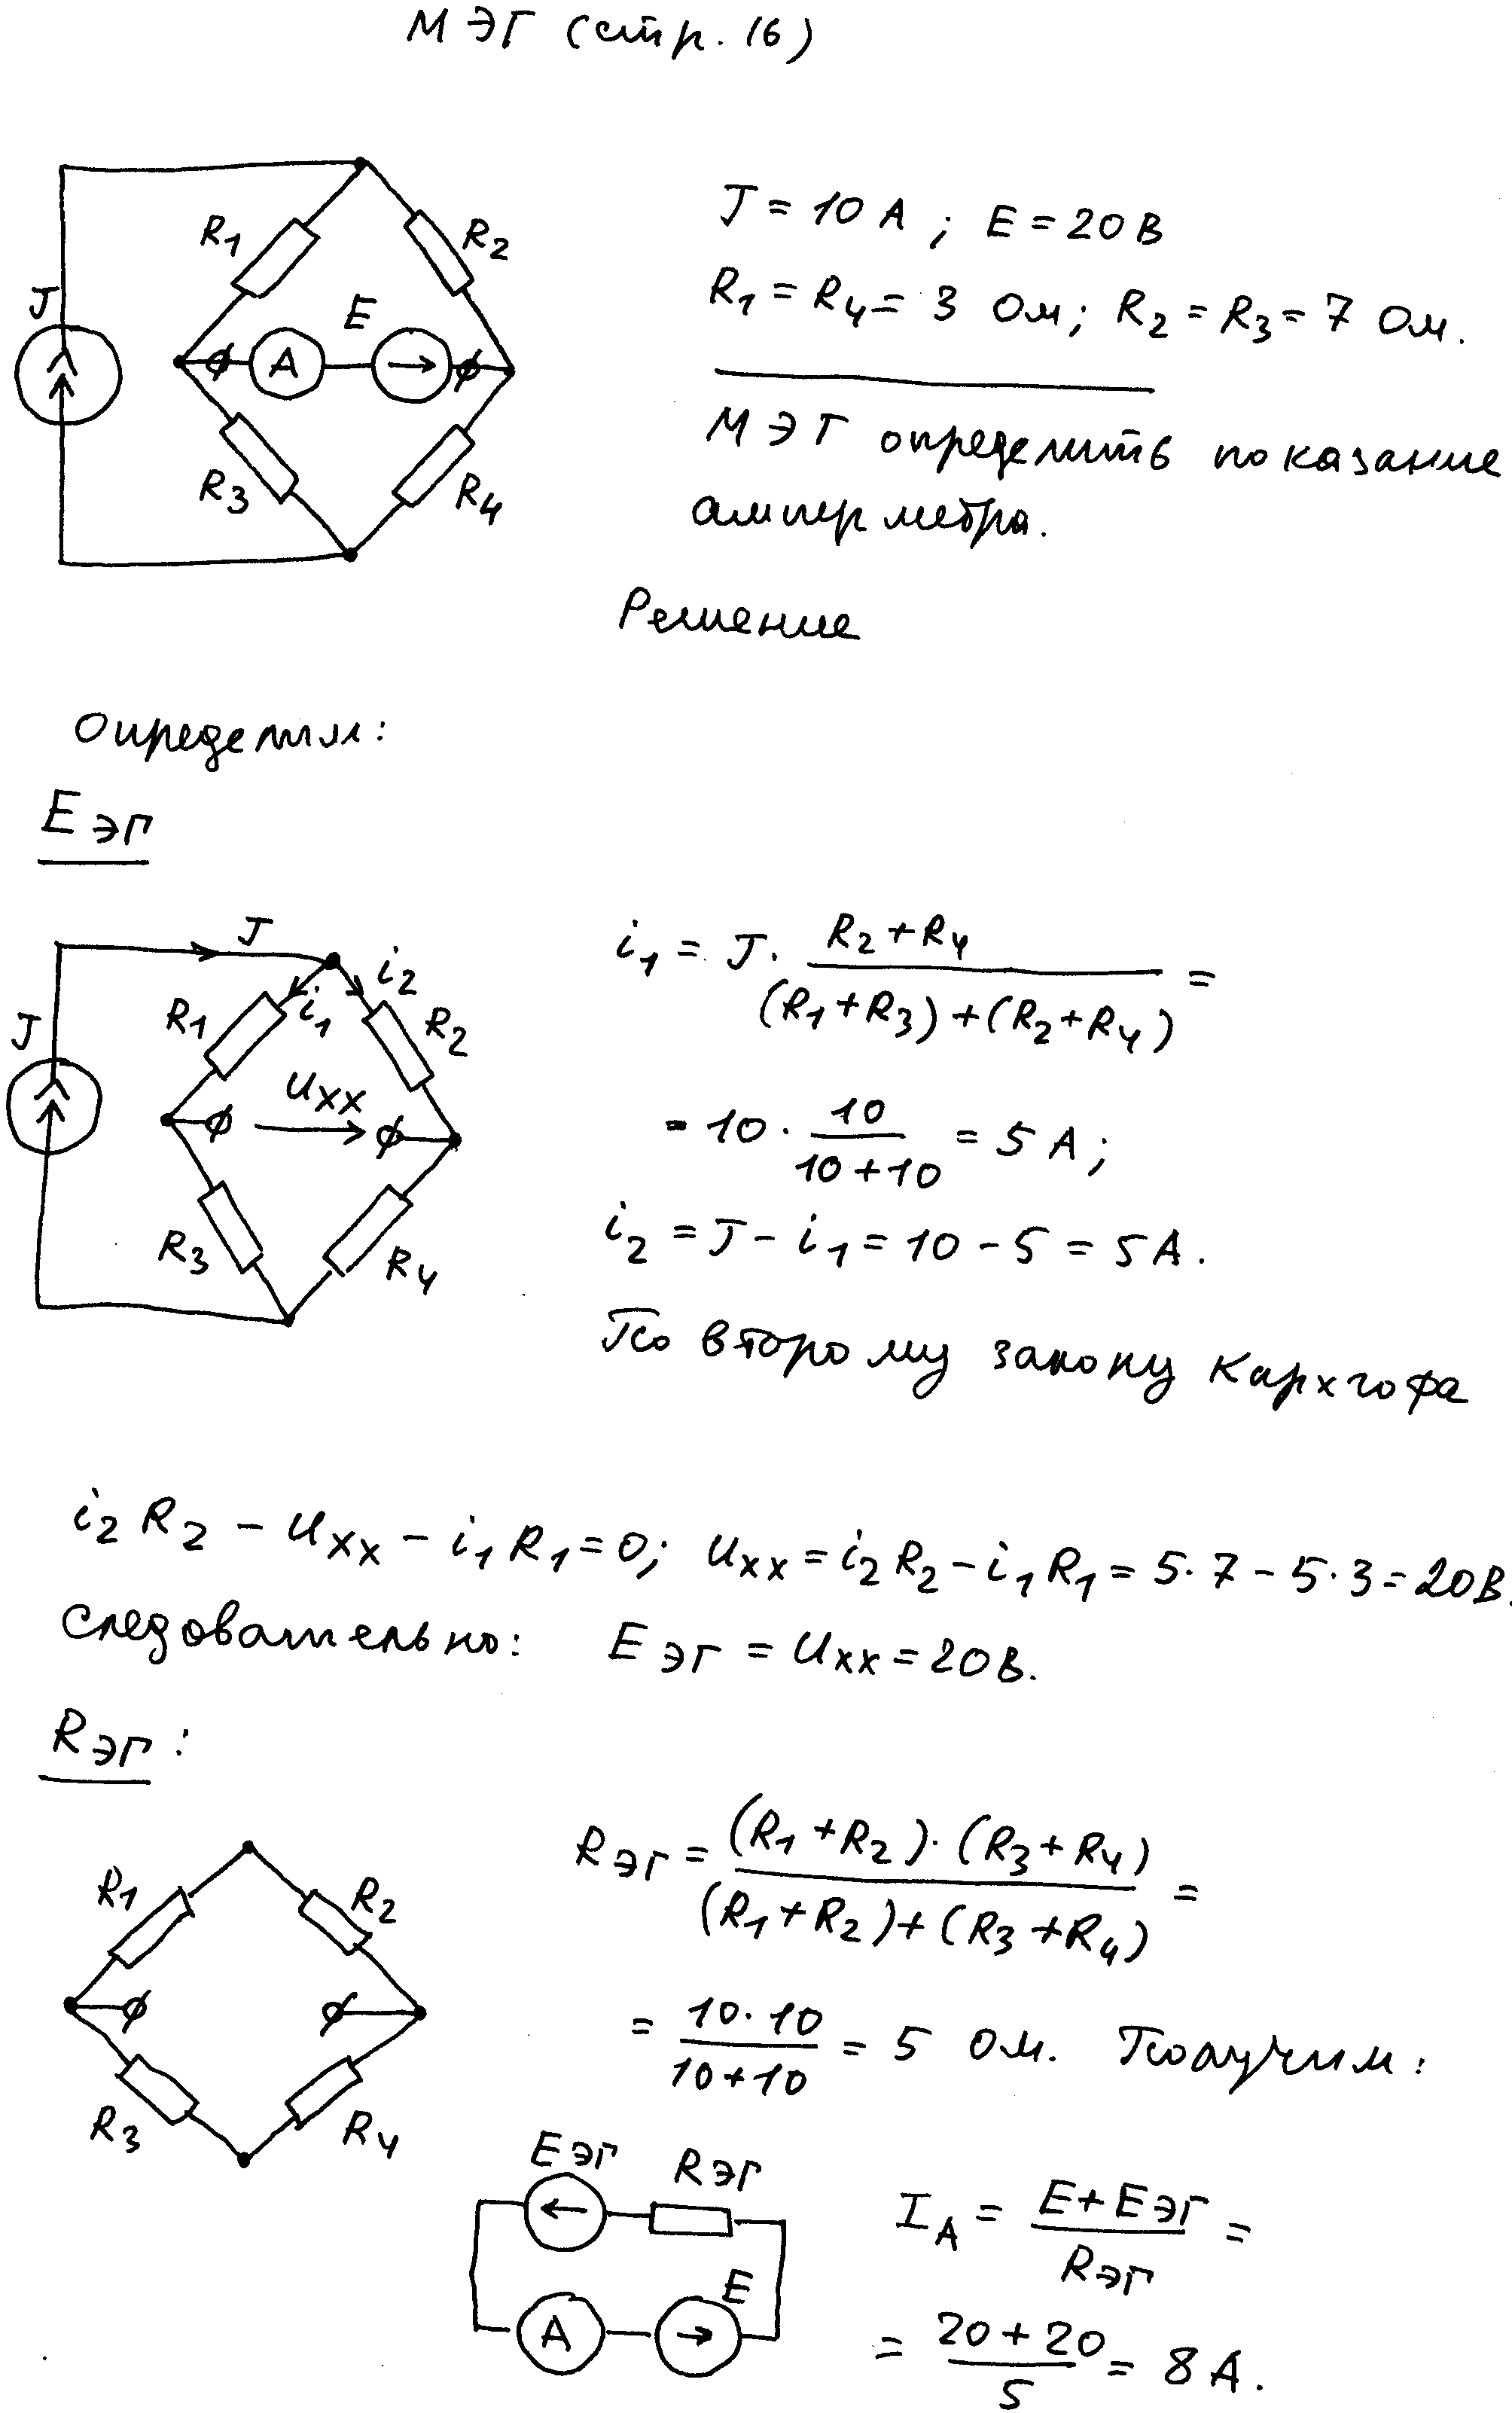 МЭГ (стр. 16)
J = 10 А ; E = 20 В
R1 = R4 = 3 Ом; R2 = R3 = 7 Ом.
J
R1
R2
E
A
R3
R4
МЭГ определить показание
амперметра.
Решение
Определим:
Eэг
J
J
i1
i2
R1
R2
uхх
R3
R4
i1 = J · (R2 + R4) / ((R1 + R3) + (R2 + R4)) =
= 10 · 10 / (10 + 10) = 5 А;
i2 = J - i1 = 10 - 5 = 5 А.
По второму закону Кархгофа
i2 R2 - uхх - i1 R1 = 0; uхх = i2 R2 - i1 R1 = 5·7 - 5·3 = 20В.
Следовательно: Eэг = uхх = 20В.
Rэг :
R1
R2
R3
R4
Rэг = (R1 + R2) · (R3 + R4) / ((R1 + R2) + (R3 + R4)) =
= 10·10 / (10 + 10) = 5 Ом. Получим:
Eэг
Rэг
A
E
IA = (E + Eэг) / Rэг =
= (20 + 20) / 5 = 8 А.